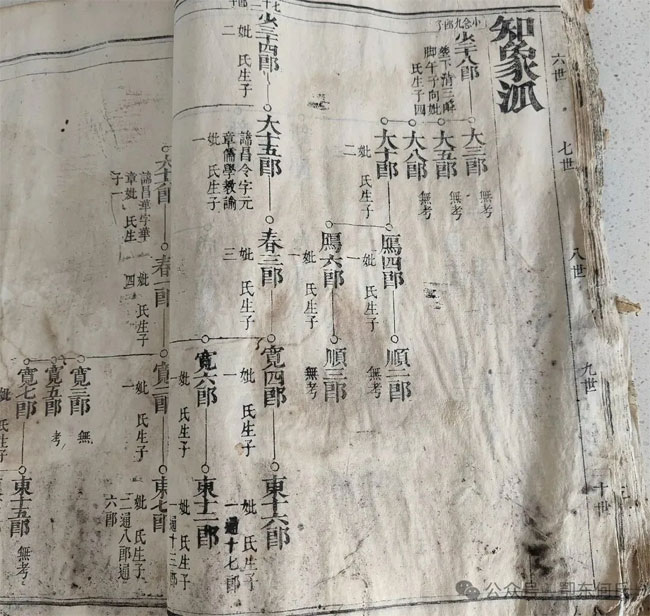 知象派
六世
七世
八世
九世
十世
少十八郎
脚午子向妣
氏生子四
大三郎
無考
大五郎
無考
大八郎
無考
大十郎
妣 氏生子二
鴈四郎
妣 氏生子一
順二郎
無考
鴈六郎
妣 氏生子一
順三郎
無考
少三十四郎
妣 氏生子二
大十五郎
諱昌令字元
章儒學教諭
妣 氏生子一
春三郎
妣 氏生子三
寬四郎
妣 氏生子一
東十六郎
妣 氏生子
一通十七郎
寬六郎
妣 氏生子
東十二郎
妣 氏生子
一通十三郎
大十六郎
諱昌華字華
章妣 氏生
子一
春一郎
妣 氏生子四
妣 氏生子一
東七郎
妣 氏生子
二通八郎通
六郎
寬三郎
無
寬五郎
考
寬七郎
妣 氏生子
東十五郎
無考
公众号